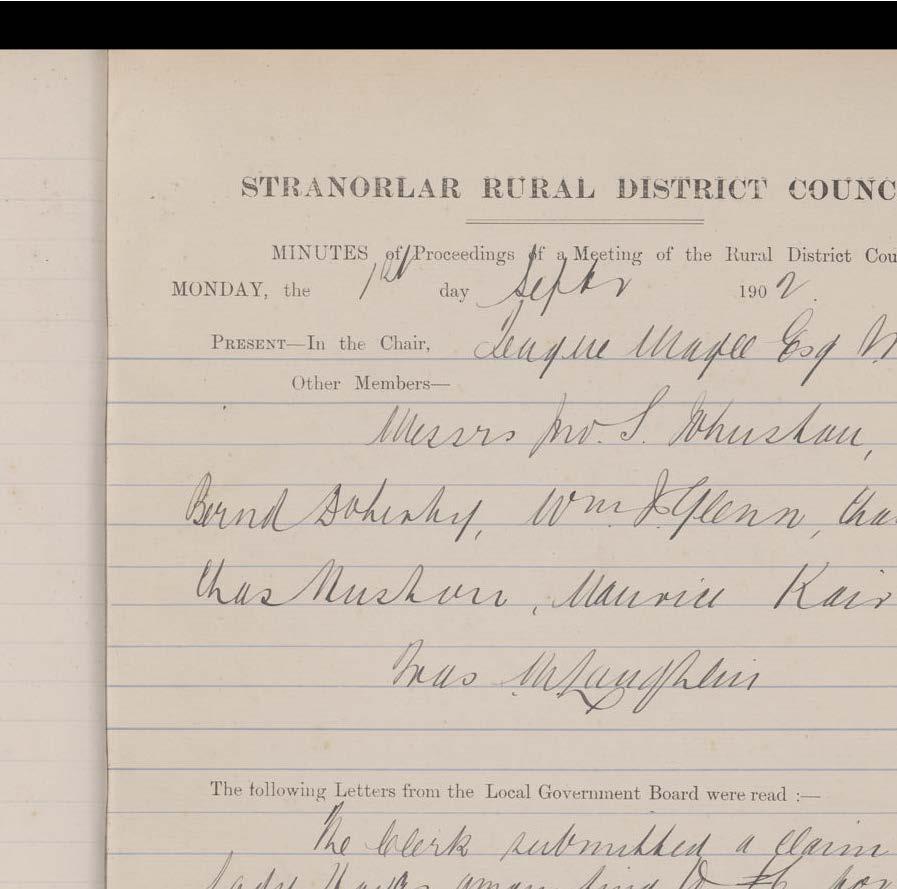 STRANORLAR RURAL DISTRICT COUNC
MINUTES of Proceedings of a Meeting of the Rural District Cou
MONDAY, the 1st day Septr 1902.
PRESENT—In the Chair, Teague Magee Esq
Other Members—
Messrs Jno. S. Johnston,
Bernd Doherty, Wm J. Glenn, Cha
Chas Maurice Kair
McLaughlin
The following Letters from the Local Government Board were read :—
The Clerk submitted a claim
Lady